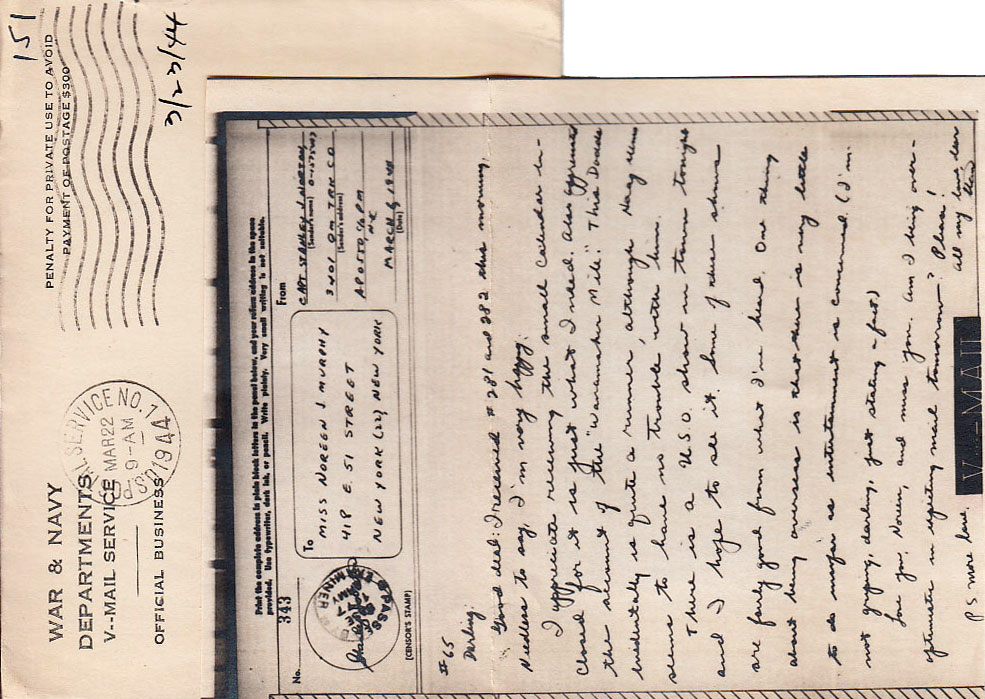 151
PENALTY FOR PRIVATE USE TO AVOID
PAYMENT OF POSTAGE $300
3/23/44
WAR & NAVY
DEPARTMENTS
V--MAIL SERVICE
OFFICIAL BUSINESS
POSTAL SERVICE NO. 1
MAR 22
9-AM
1944
Print the complete address in plain block letters in the panel below, and your return address in the space
provided. Use typewriter, dark ink, or pencil. Write plainly. Very small writing is not suitable.
No. 343
PASSED BY
EXAMINER
(CENSOR'S STAMP)
To
MISS NOREEN J. MURPHY
418 E. 51 STREET
NEW YORK (22) NEW YORK
From
CAPT. STANLEY J.
(Sender's name)
3401 QM TRK CO
(Sender's address)
APO 550 % PM
N.Y.
MARCH 6, 1944
(Date)
#65
Darling:
Good deal: I received #281 and 282 this morning.
Needless to say, I'm very happy.
I appreciate receiving the small calendar in-
closed for it is just what I need. Also appreciate
the account of the "Wanamaker Mile". This Dodds
incidentally is quite a runner, although Haag
seems to have no trouble with him.
There is a U.S.O. show in town tonight
and I hope to see it. Some of these shows
are fairly good from what I've heard. One thing
about being overseas is that there is very little
to do insofar as entertainment is concerned. (I'm
not griping, darling, just stating a fact.)
Love you, Noreen, and miss you. Am I being over-
optimistic in expecting mail tomorrow? Please!
All my love, dear
Stan
PS more love.
V-MAIL